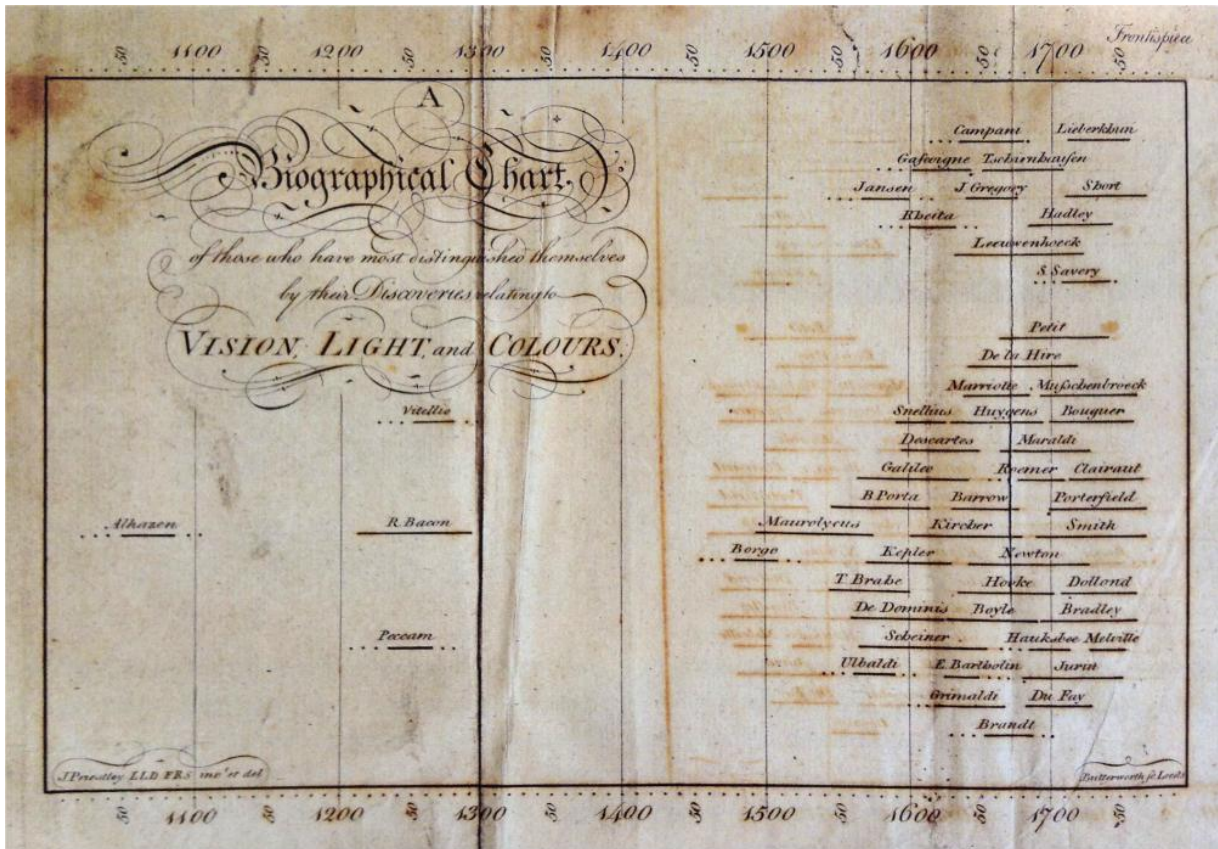 Frontispiece
50 1100 50 1200 50 1300 50 1400 50 1500 50 1600 50 1700 50
A
Biographical Chart,
of those who have most distinguished themselves
by their Discoveries relating to
VISION, LIGHT, and COLOURS.
Campani Lieberkhun
Gascoigne Tschirnhausen
Jansen J. Gregory Short
Rheita Hadley
Leeuwenhoeck
S. Savery
Petit
De la Hire
Marriotte Muſschenbroeck
Vitellio Snellius Huygens Bouguer
Descartes Maraldi
Galileo Roemer Clairaut
B. Porta Barrow Porterfield
Alhazen R. Bacon Maurolycus Kircher Smith
Borgo Kepler Newton
T. Brahe Hooke Dollond
De Dominis Boyle Bradley
Peccam Scheiner Hauksbee Melville
Ulbaldi E. Bartholin Jurin
Grimaldi Du Fay
Brandt
J. Priestley LLD FRS invt. et del Butterworth sc. Leeds
50 1100 50 1200 50 1300 50 1400 50 1500 50 1600 50 1700 50